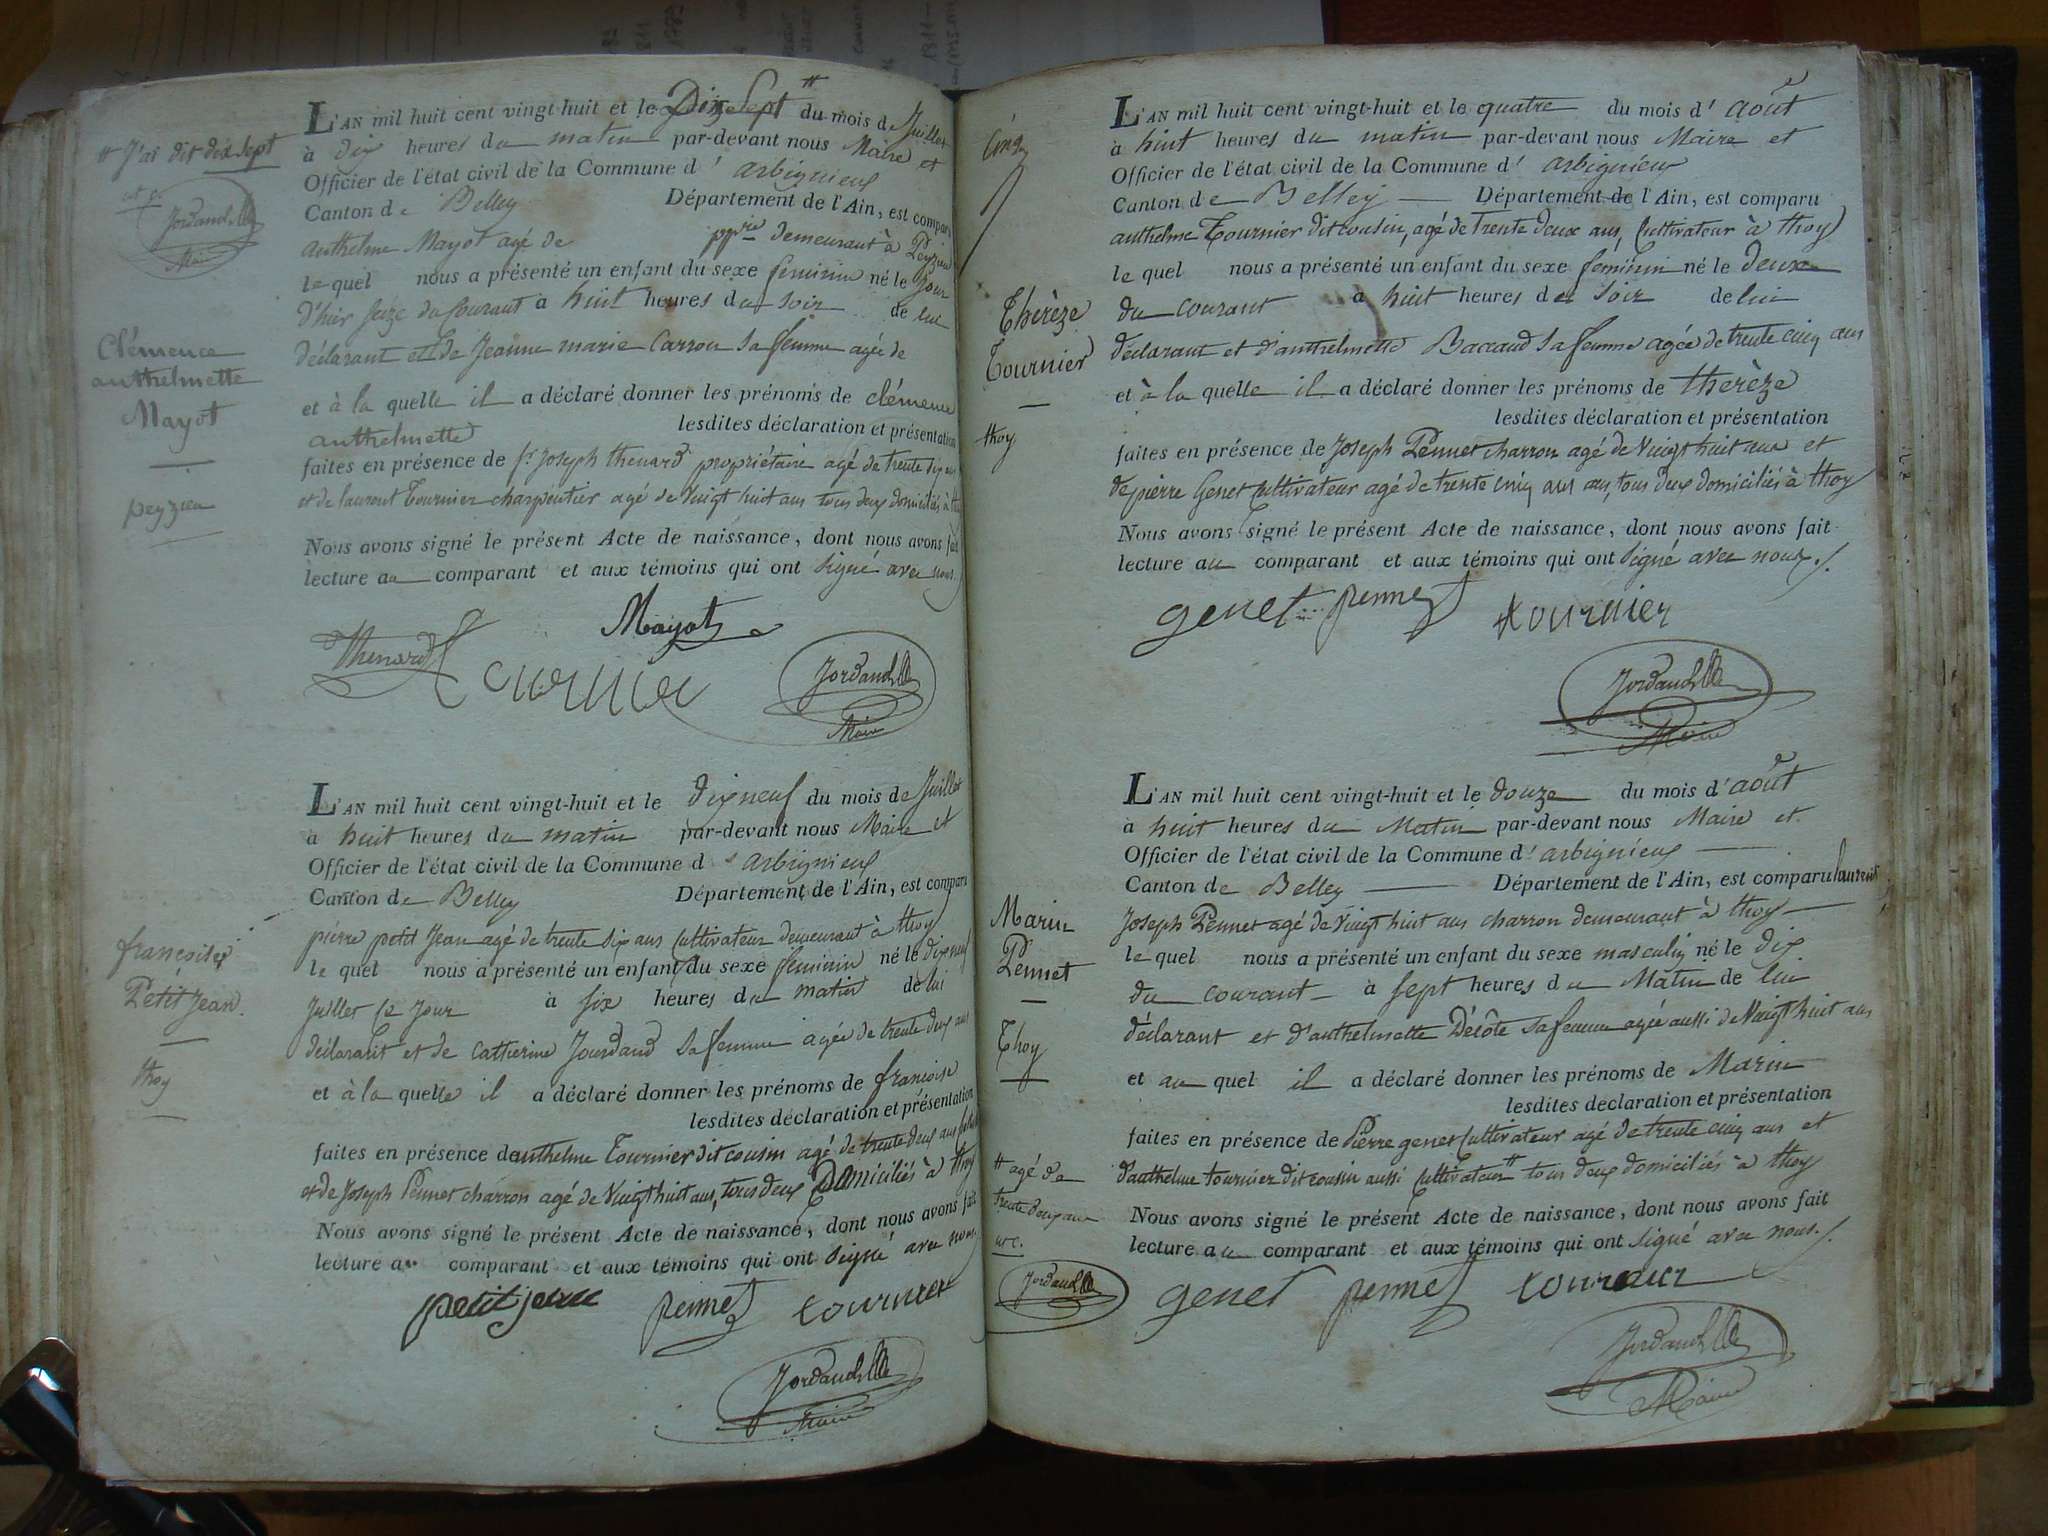 L'AN mil huit cent vingt-huit et le Dix Sept # du mois de Juillet
à dix heures du matin par-devant nous Maire et
Officier de l'état civil de la Commune d' arbignieux
Canton de Belley Département de l'Ain, est comparu
anthelme Mayot agé de ppre demeurant à Peyzieu
le quel nous a présenté un enfant du sexe feminin né le jour
d'hier Seize du Courant à huit heures du soir de lui
déclarant et de Jeanne marie Carron sa femme agée de
et à la quelle il a déclaré donner les prénoms de clémence
anthelmette lesdites déclaration et présentation
faites en présence de fs Joseph thenard propriétaire agé de trente six ans
et de laurent Tournier charpentier agé de Vuigt huit ans tous deux domiciliés à
Nous avons signé le présent Acte de naissance, dont nous avons fait
lecture au comparant et aux témoins qui ont signé avec nous.
# J'ai dit dix sept
Jordan
Maire
Clémence
anthelmette
Mayot
peyzieu
Mayot
Thenard
tournier
Jordan
Maire
L'AN mil huit cent vingt-huit et le dix neuf du mois de Juillet
à huit heures du matin par-devant nous Maire et
Officier de l'état civil de la Commune d' arbignieux
Canton de Belley Département de l'Ain, est comparu
pierre petit Jean agé de trente six ans Cultivateur demeurant à thoy
le quel nous a présenté un enfant du sexe feminin né le dix neuf
Juillet ce jour à six heures du matin de lui
déclarant et de catherine Jourdand sa femme agée de trente deux ans
et à la quelle il a déclaré donner les prénoms de francoise
lesdites déclaration et présentation
faites en présence de anthelme Tournier dit cousin agé de trente deux ans
et de Joseph Pennet charron agé de Vuigt huit ans, tous deux Domiciliés à thoy
Nous avons signé le présent Acte de naissance, dont nous avons fait
lecture au comparant et aux témoins qui ont signé avec nous.
francoise
Petit Jean.
thoy
petit jean pennet tournier
Jordan
Maire
Cinq
L'AN mil huit cent vingt-huit et le quatre du mois d' août
à huit heures du matin par-devant nous Maire et
Officier de l'état civil de la Commune d' arbignieux
Canton de Belley Département de l'Ain, est comparu
anthelme Tournier dit cousin, agé de trente deux ans, Cultivateur à thoy
le quel nous a présenté un enfant du sexe feminin né le deux
du courant à huit heures du soir de lui
déclarant et d'anthelmette Baccaud sa femme agée de trente cinq ans
et à la quelle il a déclaré donner les prénoms de therèze
lesdites déclaration et présentation
faites en présence de Joseph Pennet charron agé de Vuigt huit ans et
de pierre Genet Cultivateur agé de trente cinq ans, tous deux domiciliés à thoy
Nous avons signé le présent Acte de naissance, dont nous avons fait
lecture au comparant et aux témoins qui ont signé avec nous./.
Therèze
Tournier
thoy
genet pennet tournier
Jordan
Maire
L'AN mil huit cent vingt-huit et le douze du mois d' août
à huit heures du Matin par-devant nous Maire et
Officier de l'état civil de la Commune d' arbignieux
Canton de Belley Département de l'Ain, est comparu laurent
Joseph Pennet agé de Vuigt huit ans charron demeurant à thoy
le quel nous a présenté un enfant du sexe masculin né le dix
du courant à sept heures du Matin de lui
déclarant et d'anthelmette Décôte sa femme agée aussi de Vuigt huit ans
et au quel il a déclaré donner les prénoms de Marin
lesdites declaration et présentation
faites en présence de Pierre genet Cultivateur agé de trente cinq ans et
d'anthelme tournier dit cousin aussi Cultivateur # tous deux domiciliés à thoy
Nous avons signé le présent Acte de naissance, dont nous avons fait
lecture au comparant et aux témoins qui ont signé avec nous./.
Marin
Pennet
Thoy
# agé de
trente deux ans
Jordan
genet pennet tournier
Jordan
Maire